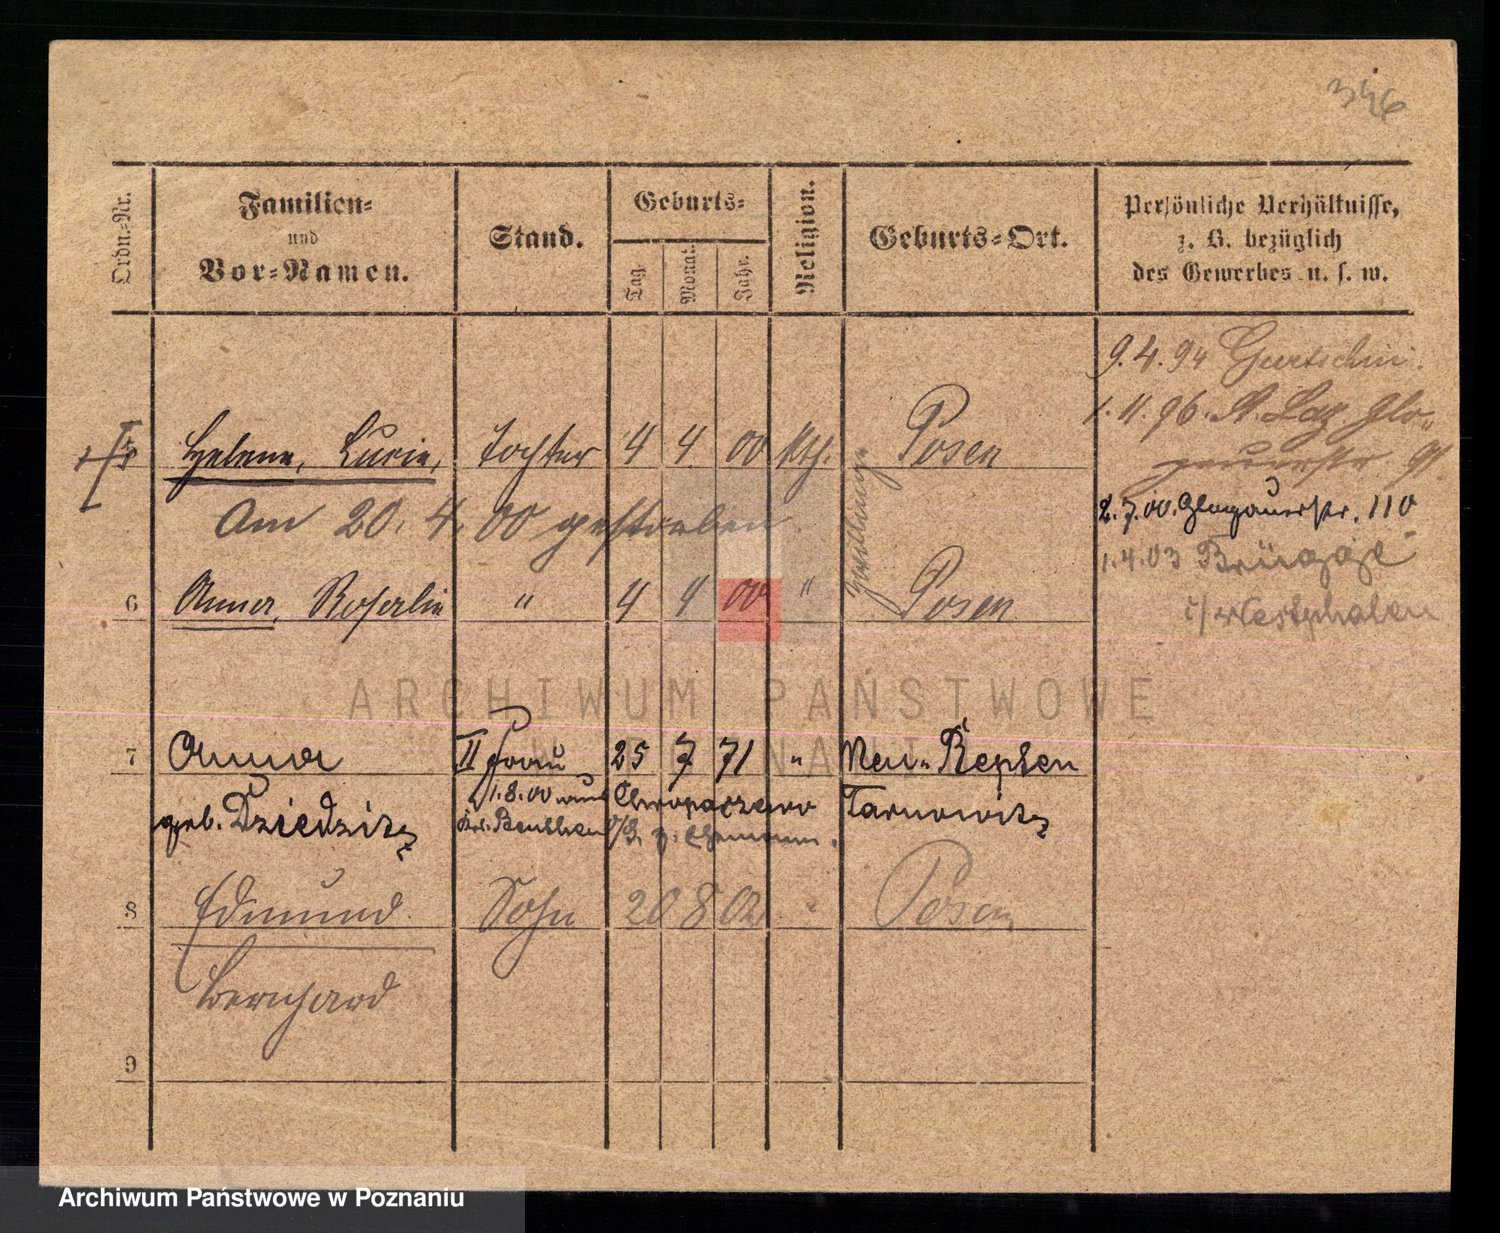 346
Ordn.-Nr.
Familien-
und
Vor-Namen.
Stand.
Geburts-
Tag.
Monat.
Jahr.
Religion.
Geburts-Ort.
Persönliche Verhältnisse,
z. B. bezüglich
des Gewerbes u. s. w.
9.4.94 Gurtschin.
1.11.96. St. Laz. Glo-
gauerstr. 91
5 Helene, Lucie, Tochter 4 4 00 kth. Posen
Am 20. 4. 00 gestorben.
2.7.00. Glogauerstr. 110
1.4.03 Brügge
i/Westphalen
Zwillinge
6 Anna, Rosalie " 4 4 00 " Posen
ARCHIWUM PAŃSTWOWE
W POZNANIU
7 Anna II Frau 25 7 71 " Neu-Repten
geb. Dziedzitz 1.8.00 aus Chropaczewo Tarnowitz
Kr. Beuthen O/S. z. Ehemann.
8 Edmund Sohn 20 8 02 " Posen
Bernhard
9
Archiwum Państwowe w Poznaniu